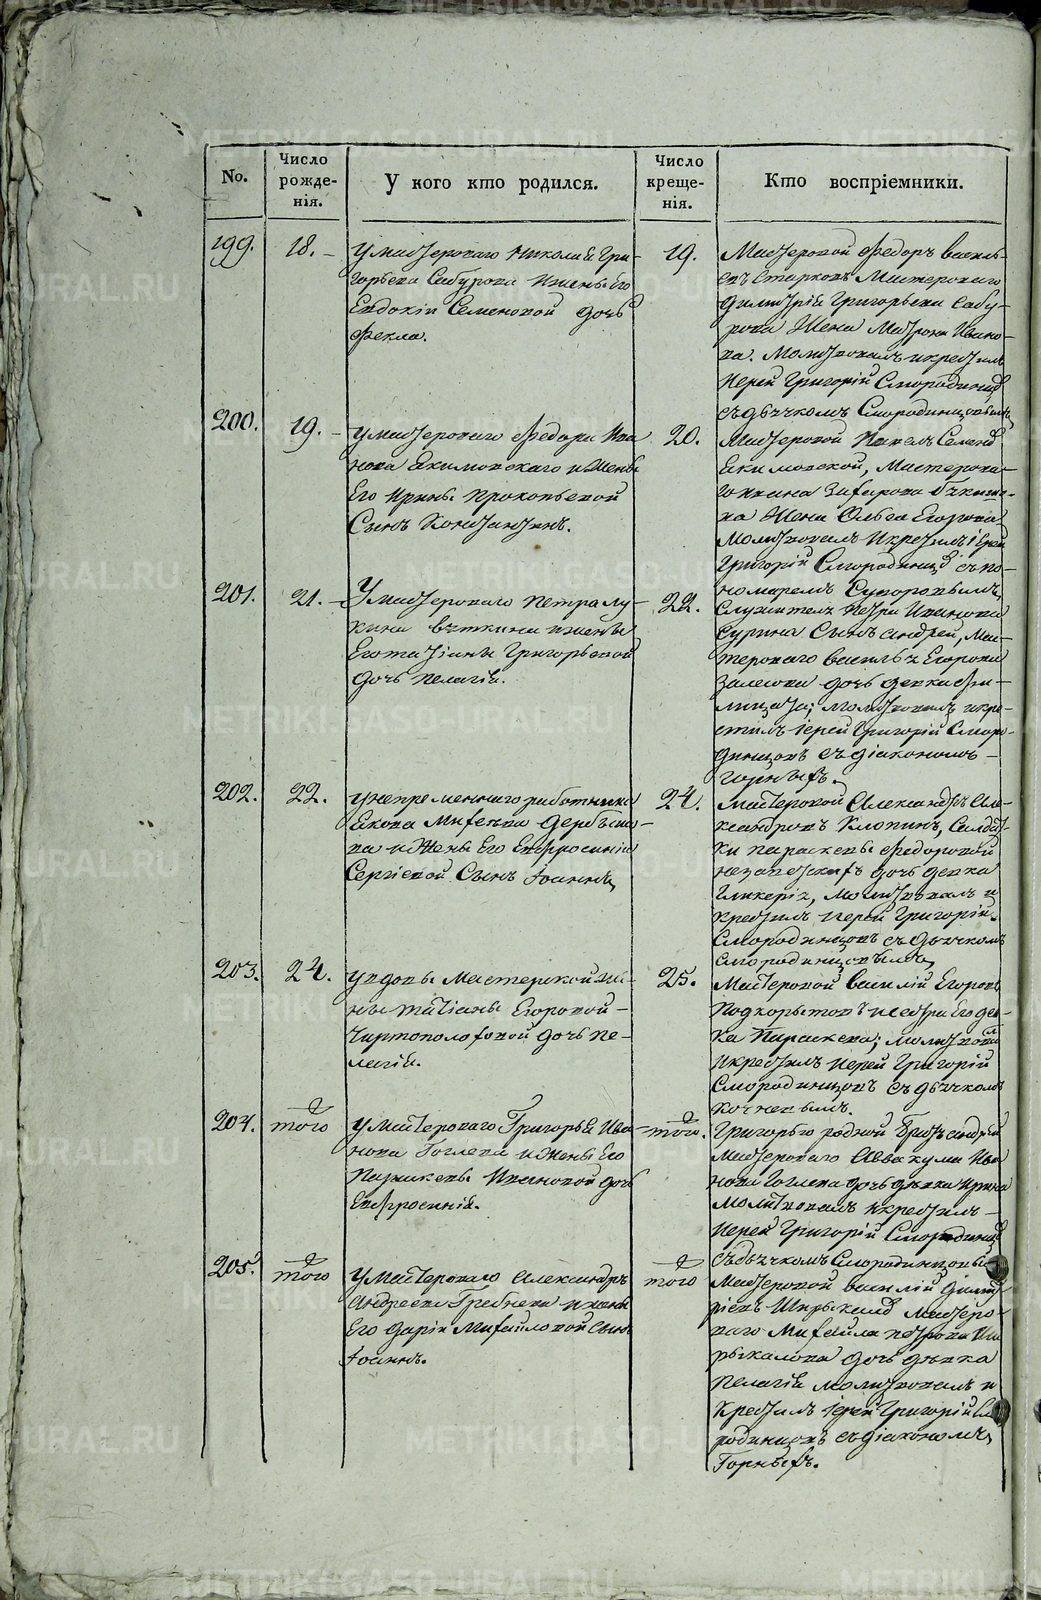 No.
Число рожде-нія.
У кого кто родился.
Число креще-нія.
Кто воспріемники.
199.
18.
У мастероваго Николая Гри-
горьева Сабурова и жены Его
Евдокіи Семеновой дочь
Фекла.
19.
Мастеровой Федоръ Василь-
евъ Старковъ Мастероваго
Димитрія Григорьева Сабу-
рова Жена Матрона Ивано-
ва. Молитвовалъ и крестилъ
Иерей Григорій Смородинцо
съ дьячкомъ Смородинцовымъ
200.
19.
У мастероваго Федора Ива
нова Екимовскаго и Жены
Его Ирины Прокопьевой
Сынъ Константинъ.
20.
Мастеровой Павелъ Семено
Екимовской, Мастерова-
го Жена Ольга Егорова
Молитвовалъ и крестилъ іерей
Григорій Смородинцо съ по-
номаремъ Суворовымъ,
201.
21.
У мастероваго Петра Лу-
кина Вяткина и жены
Его Татіаны Григорьевой
дочь Пелагія.
22.
Служителя Петра Иванова
Сурина Сынъ Андрей, Мас-
тероваго Василья Егорова
Залесова дочь девка Фи-
лицата; Молитвовалъ и кре-
стилъ іерей Григорій Сморо-
динцовъ съ діакономъ
Горныхъ.
202.
22.
У непременнаго работника
Екова Михеева Дербыше-
ва и Жены Его Евфросиніи
Сергіевой Сынъ Іоаннъ,
24.
Мастеровой Александръ Але-
ксандровъ Клопинъ, Салдат-
ки Параскевы Федоровой
дочь девка
Гликерія, Молитвовалъ и
крестилъ Иерей Григорій
Смородинцовъ съ дьячкомъ
Смородинцовымъ,
203.
24.
У вдовы Мастерской же-
ны Татіаны Егоровой
Чертополоховой дочь Пе-
лагія.
25.
Мастеровой Василій Егоровъ
Подкорытовъ и сестра Его дев-
ка Параскева; Молитвовал
и крестилъ Иерей Григорій
Смородинцовъ съ дьячкомъ
Кочневымъ.
204.
того
У мастероваго Григорья Ива
нова Гоглева и Жены Его
Параскевы Ивановой дочь
Евфросинія.
того.
Григорью родной братъ Андрей
Мастероваго Аввакума Ива
нова Гоглева дочь девка Ирина
Молитвовалъ и крестилъ
Иерей Григорій Смородинцо
съ дьячкомъ Смородинцовы
205.
того
У мастероваго Александра
Андреева Гребнева и жены
Его Даріи Михайловой Сынъ
Іоаннъ.
того
Мастеровой Василій Димит
ріевъ Ширыкало Мастеро-
ваго Михайла Петрова Ши
рыкалова дочь девка
Пелагія Молитвовалъ и
крестилъ іерей Григорій Смо
родинцовъ съ діакономъ,
Горныхъ.
METRIKI.GASO-URAL.RU